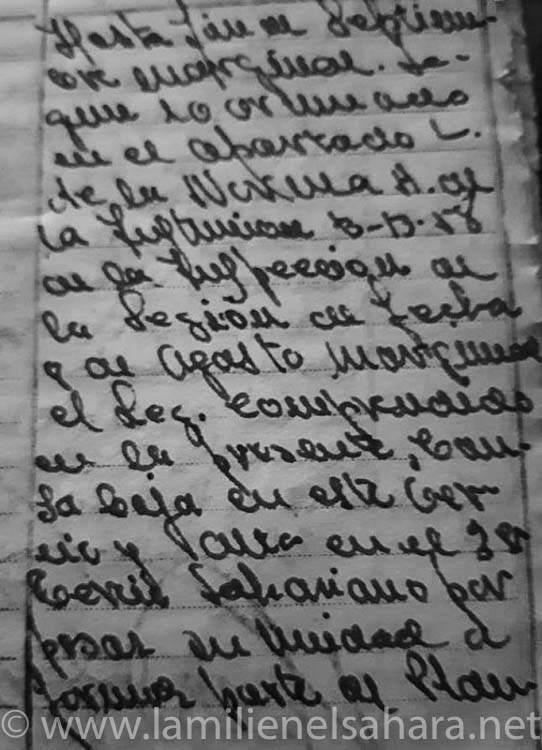 Hasta fin de Septiem-
bre marginal. Se-
gun lo ordenado
en el apartado L.
de la Norma A. de
la Instruccion 3-D-58
de la Inspección de
la Legión en fecha
9 de Agosto marginal
el Leg. comprendido
en la presente, Cau-
sa baja en este Ter-
cio y Pasa en el 3er
Tercio Sahariano por
pasar su Unidad a
formar parte de
© www.lamilienelsahara.net